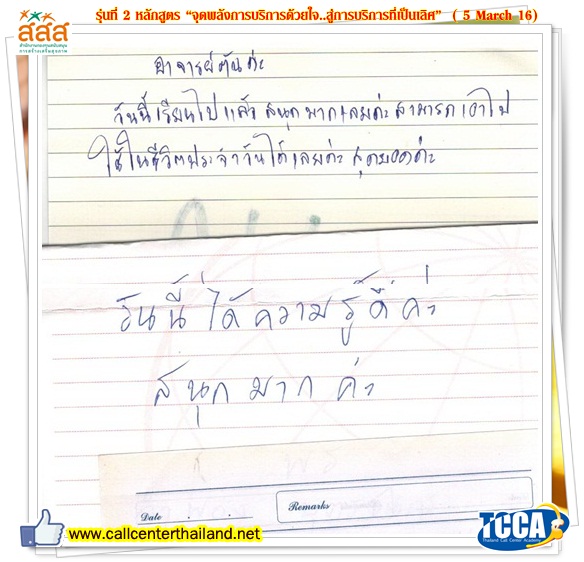 รุ่นที่ 2 หลักสูตร “จุดพลังการบริการด้วยใจ..สู่การบริการที่เป็นเลิศ” ( 5 March 16)
สสส
สำนักงานกองทุนสนับสนุน
การสร้างเสริมสุขภาพ
อาจารย์ตันค่ะ
วันนี้เรียนไปแล้ว สนุกมากเลยค่ะ สามารถเอาไป
ใช้ในชีวิตประจำวันได้เลยค่ะ สุดยอดค่ะ
วันนี้ได้ความรู้ดีค่ะ
สนุกมากค่ะ
Date
Remarks
www.callcenterthailand.net
TCCA
Thailand Call Center Academy